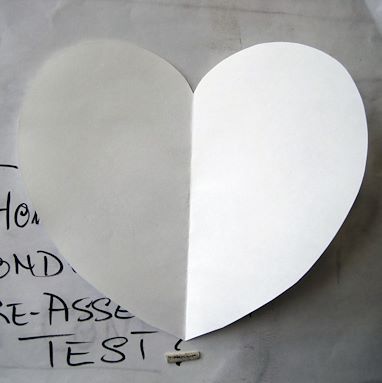 HOW
COND
RE-ASSE
TEST ?